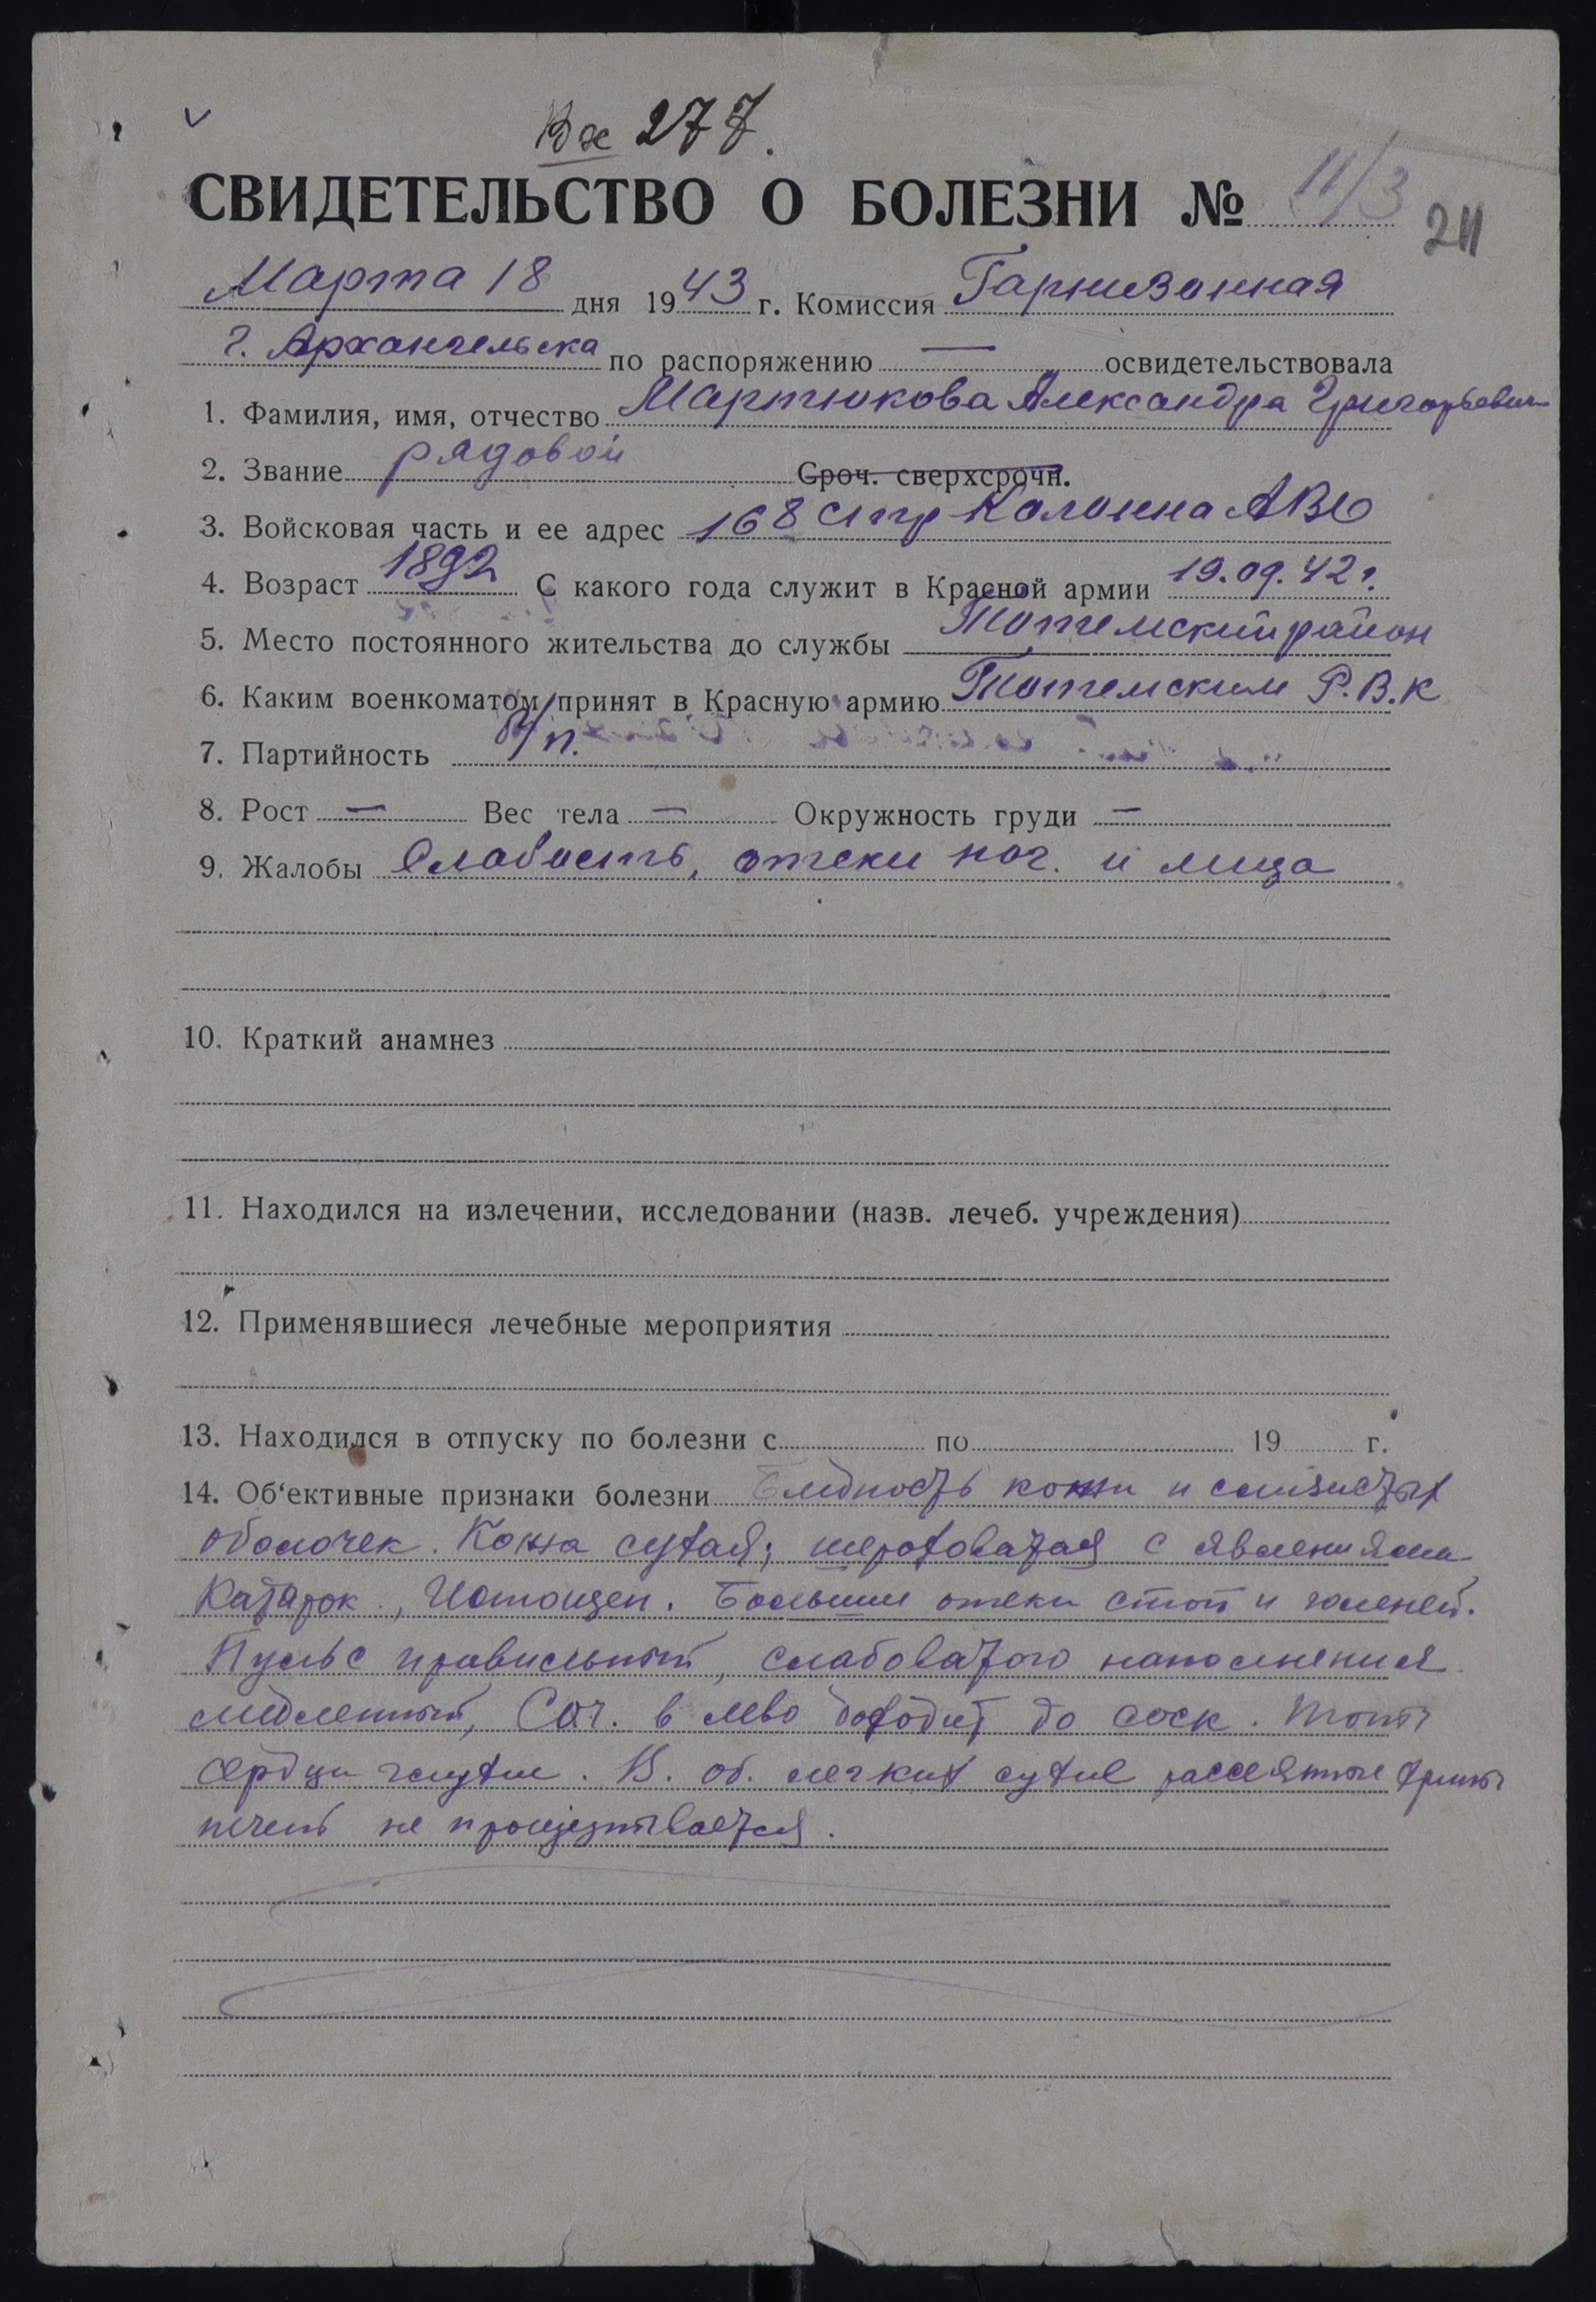 Вх 277.
СВИДЕТЕЛЬСТВО О БОЛЕЗНИ № 11/3
211
Марта 18 дня 1943 г. Комиссия Гарнизонная
г. Архангельска по распоряжению — освидетельствовала
1. Фамилия, имя, отчество Мартюкова Александра Григорьевич
2. Звание рядовой Сроч. сверхсрочн.
3. Войсковая часть и ее адрес 168 стр Колонна АВО
4. Возраст 1892 С какого года служит в Красной армии 19.09.42 г.
5. Место постоянного жительства до службы Тотемский район
6. Каким военкоматом принят в Красную армию Тотемским Р.В.К
7. Партийность б/п.
8. Рост — Вес тела — Окружность груди —
9. Жалобы Слабость, отеки ног. и лица
10. Краткий анамнез
11. Находился на излечении, исследовании (назв. лечеб. учреждения)
12. Применявшиеся лечебные мероприятия
13. Находился в отпуску по болезни с по 19 г.
14. Об‘ективные признаки болезни Бледность кожи и слизистых
оболочек. Кожа сухая; шероховатая с явлениями
Истощен. Большие отеки стоп и голеней.
Пульс правильный, слабоватого наполнения
медленный, в лево доходит до соск. Тоны
сердца глухие. В. об. легких сухие рассеянные хрипы
печень не прощупывается.